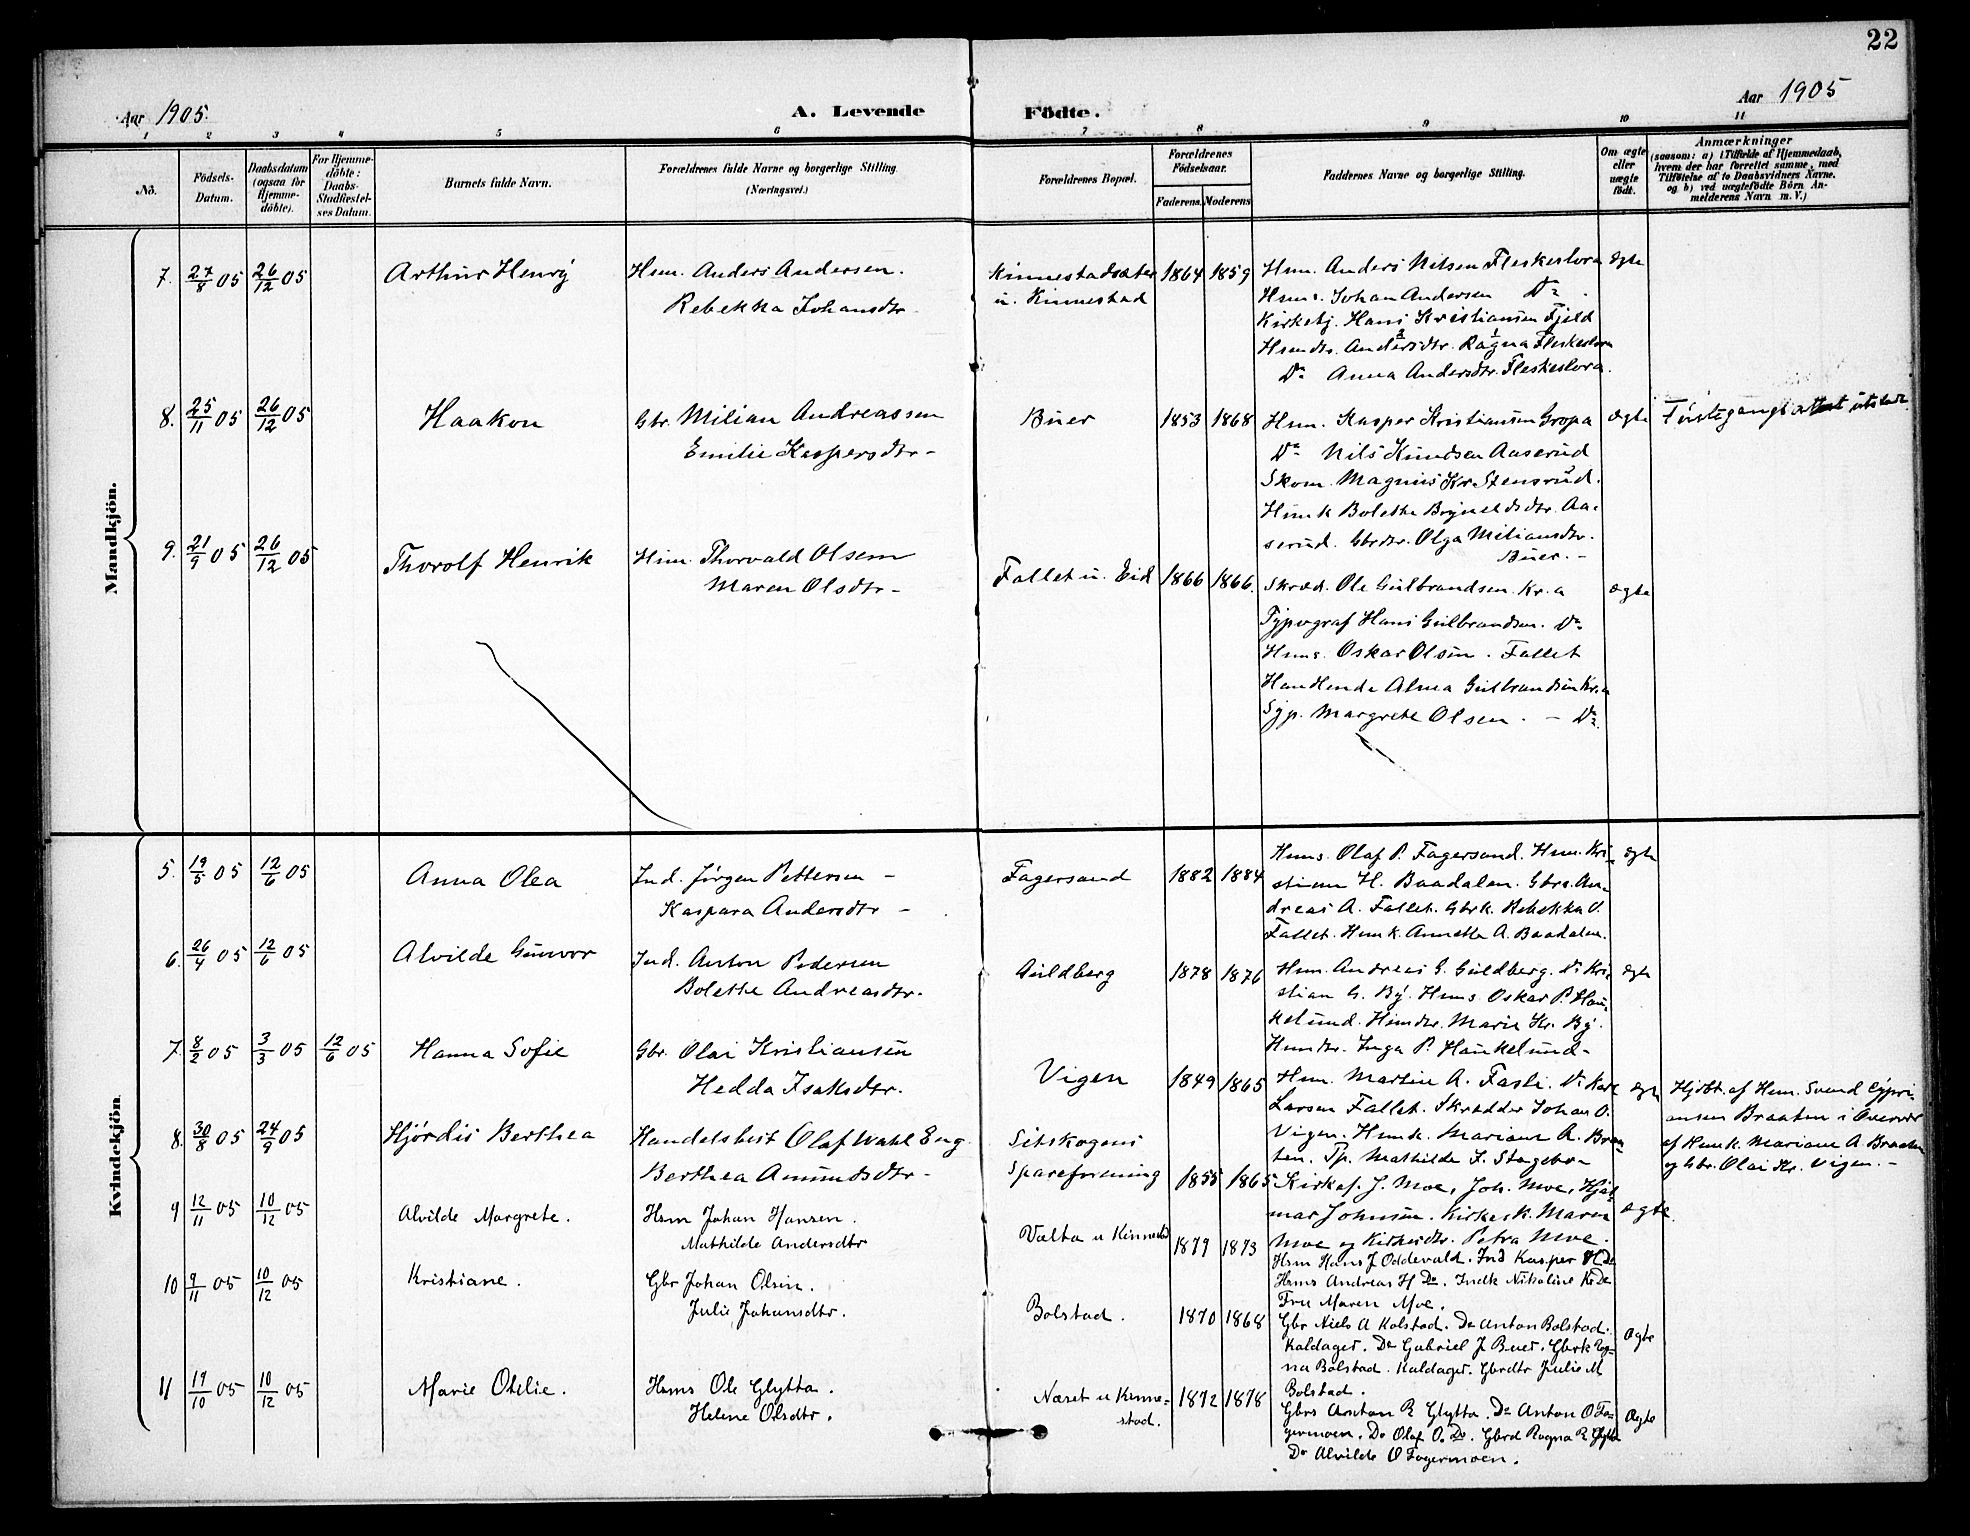 22
Aar 1905.
A. Levende
Födte.
Aar 1905
1 2 3 4 5 6 7 8 9 10 11
No.
Födsels-Datum.
Daabsdatum (ogsaa for Hjemmedöbte).
For Hjemmedöbte: Daabs-Stadfæstelses Datum.
Barnets fulde Navn.
Forældrenes fulde Navne og borgerlige Stilling (Næringsvei.)
Forældrenes Bopæl.
Forældrenes Födselsaar.
Faderens. Moderens
Faddernes Navne og borgerlige Stilling.
Om ægte eller uægte födt.
Anmærkninger
(saasom: a) i Tilfælde af Hjemmedaab,
hvem der har forrettet samme, med
Tilföielse af to Daabsvidners Navne.
og b) ved uægtefödte Börn An-
melderens Navn m. V.)
Mandkjön.
7. 27/8 05 26/12 05 Arthur Henry Hsm. Anders Andersen. Kinnestadsæter 1864 1859 Hsm. Anders Nilsen Fleskeslora ægte
Rebekka Johansdtr. u. Kinnestad Hsms. Johan Andersen Do
Kirketj. Hans Kristiansen Fjeld
Hsmdtr. Andersdtr. Ragna Fleskeslora
Do Anna Andersdtr. Fleskeslora.
8. 25/11 05 26/12 05 Haakon Gbr. Milian Andreassen Buer 1853 1868 Hsm. Kasper Kristiansen Gropa ægte Förstegangsattest utstedt
Emilie Kaspersdtr. Do Nils Knudsen Aaserud
Skom. Magnus Kr. Stensrud.
Hsmk Bolette Bryneldsdtr. Aa-
serud. Gbrdtr. Olga Miliansdtr.
Buer.
9. 21/9 05 26/12 05 Thorolf Henrik Hsm. Thorvald Olsen Fallet u. Eid 1866 1866. Skræd. Ole Gulbrandsen. Kr.a ægte
Maren Olsdtr. Typograf Hans Gulbrandsen. Do
Hsms. Oskar Olsen. Fallet
Handlende Alma Gulbrandsen Kr.a
Syp. Margrete Olsen. Do
Kvindekjön.
5. 19/5 05 12/6 05 Anna Olea Ind. Jörgen Pettersen Fagersand 1882 1884 Hsms. Olaf P. Fagersand. Hsm. Kri- ægte
Kaspara Andersdtr stian H. Baadalen. Gbrs. An-
dreas A. Fallet. Gbrk. Rebekka O.
Fallet. Hsmk. Annette A. Baadalen.
6. 26/4 05 12/6 05 Alvilde Gunvor Ind. Anton Pedersen Guldberg 1878 1876 Hsm. Andreas G. Guldberg. Do Kri- ægte
Bolette Andreasdtr. stian G. By. Hsms. Oskar P. Hau-
kelund. Hsmdtr. Marie Kr. By.
Hsmdtr. Inga P. Haukelund
7. 8/2 05 3/3 05 12/6 05 Hanna Sofie Gbr. Olai Kristiansen Vigen 1849 1865 Hsm. Martin A. Fasli. Do Karl ægte Hjdöbt. af Hsm. Svend Cypri
Hedda Isaksdtr. Larsen Fallet. Skrædder Johan O. ansen Braaten i Overvær
Vigen. Hsmk. Mariane A. Braa- af Hsmk. Mariane A. Braaten
ten. Tp. Mathilde og Gbr. Olai Kr. Vigen.
8. 30/8 05 24/9 05 Hjördis Berthea Handelsbest Olaf Wahl Eng Setskogens 1855 1865 Kirkes. J. Moe, Joh. Moe, Hjal- ægte.
Berthea Amundsdtr Spareforening mar Johnsen. Kirkesk. Maren
Moe og Kirkesdtr. Petra Moe.
9 12/11 05 10/12 05 Alvilde Margrete. Hsm Johan Hansen. Valta u Kinnestad 1879 1873 Hsm Hans J Oddevald. Ind Kasper H Do
Mathilde Andersdtr Hsms Andreas H Do. Indk Nikoline K Do
Fru Maren Moe.
10 9/11 05 10/12 05 Kristiane. Gbr Johan Olsen. Bolstad. 1870 1868 Gbr Niels A Kolstad. Do Anton Bolstad. Ægte
Julie Johansdtr. Kaldager. Do Gabriel J Buer. Gbrk Rag-
na Bolstad. Kaldager. Gbrdtr Julie M
Bolstad.
11 19/10 05 10/12 05 Marie Otelie. Hsms Ole Glytta. Næset u Kinne- 1872 1878 Gbrs Anton R Glytta. Do Anton O Fa- Ægte
Helene Olsdtr. stad. germoen. Do Olaf O. Do. Gbrd Ragna R Glytta
Do Alvilde O Fagermoen.